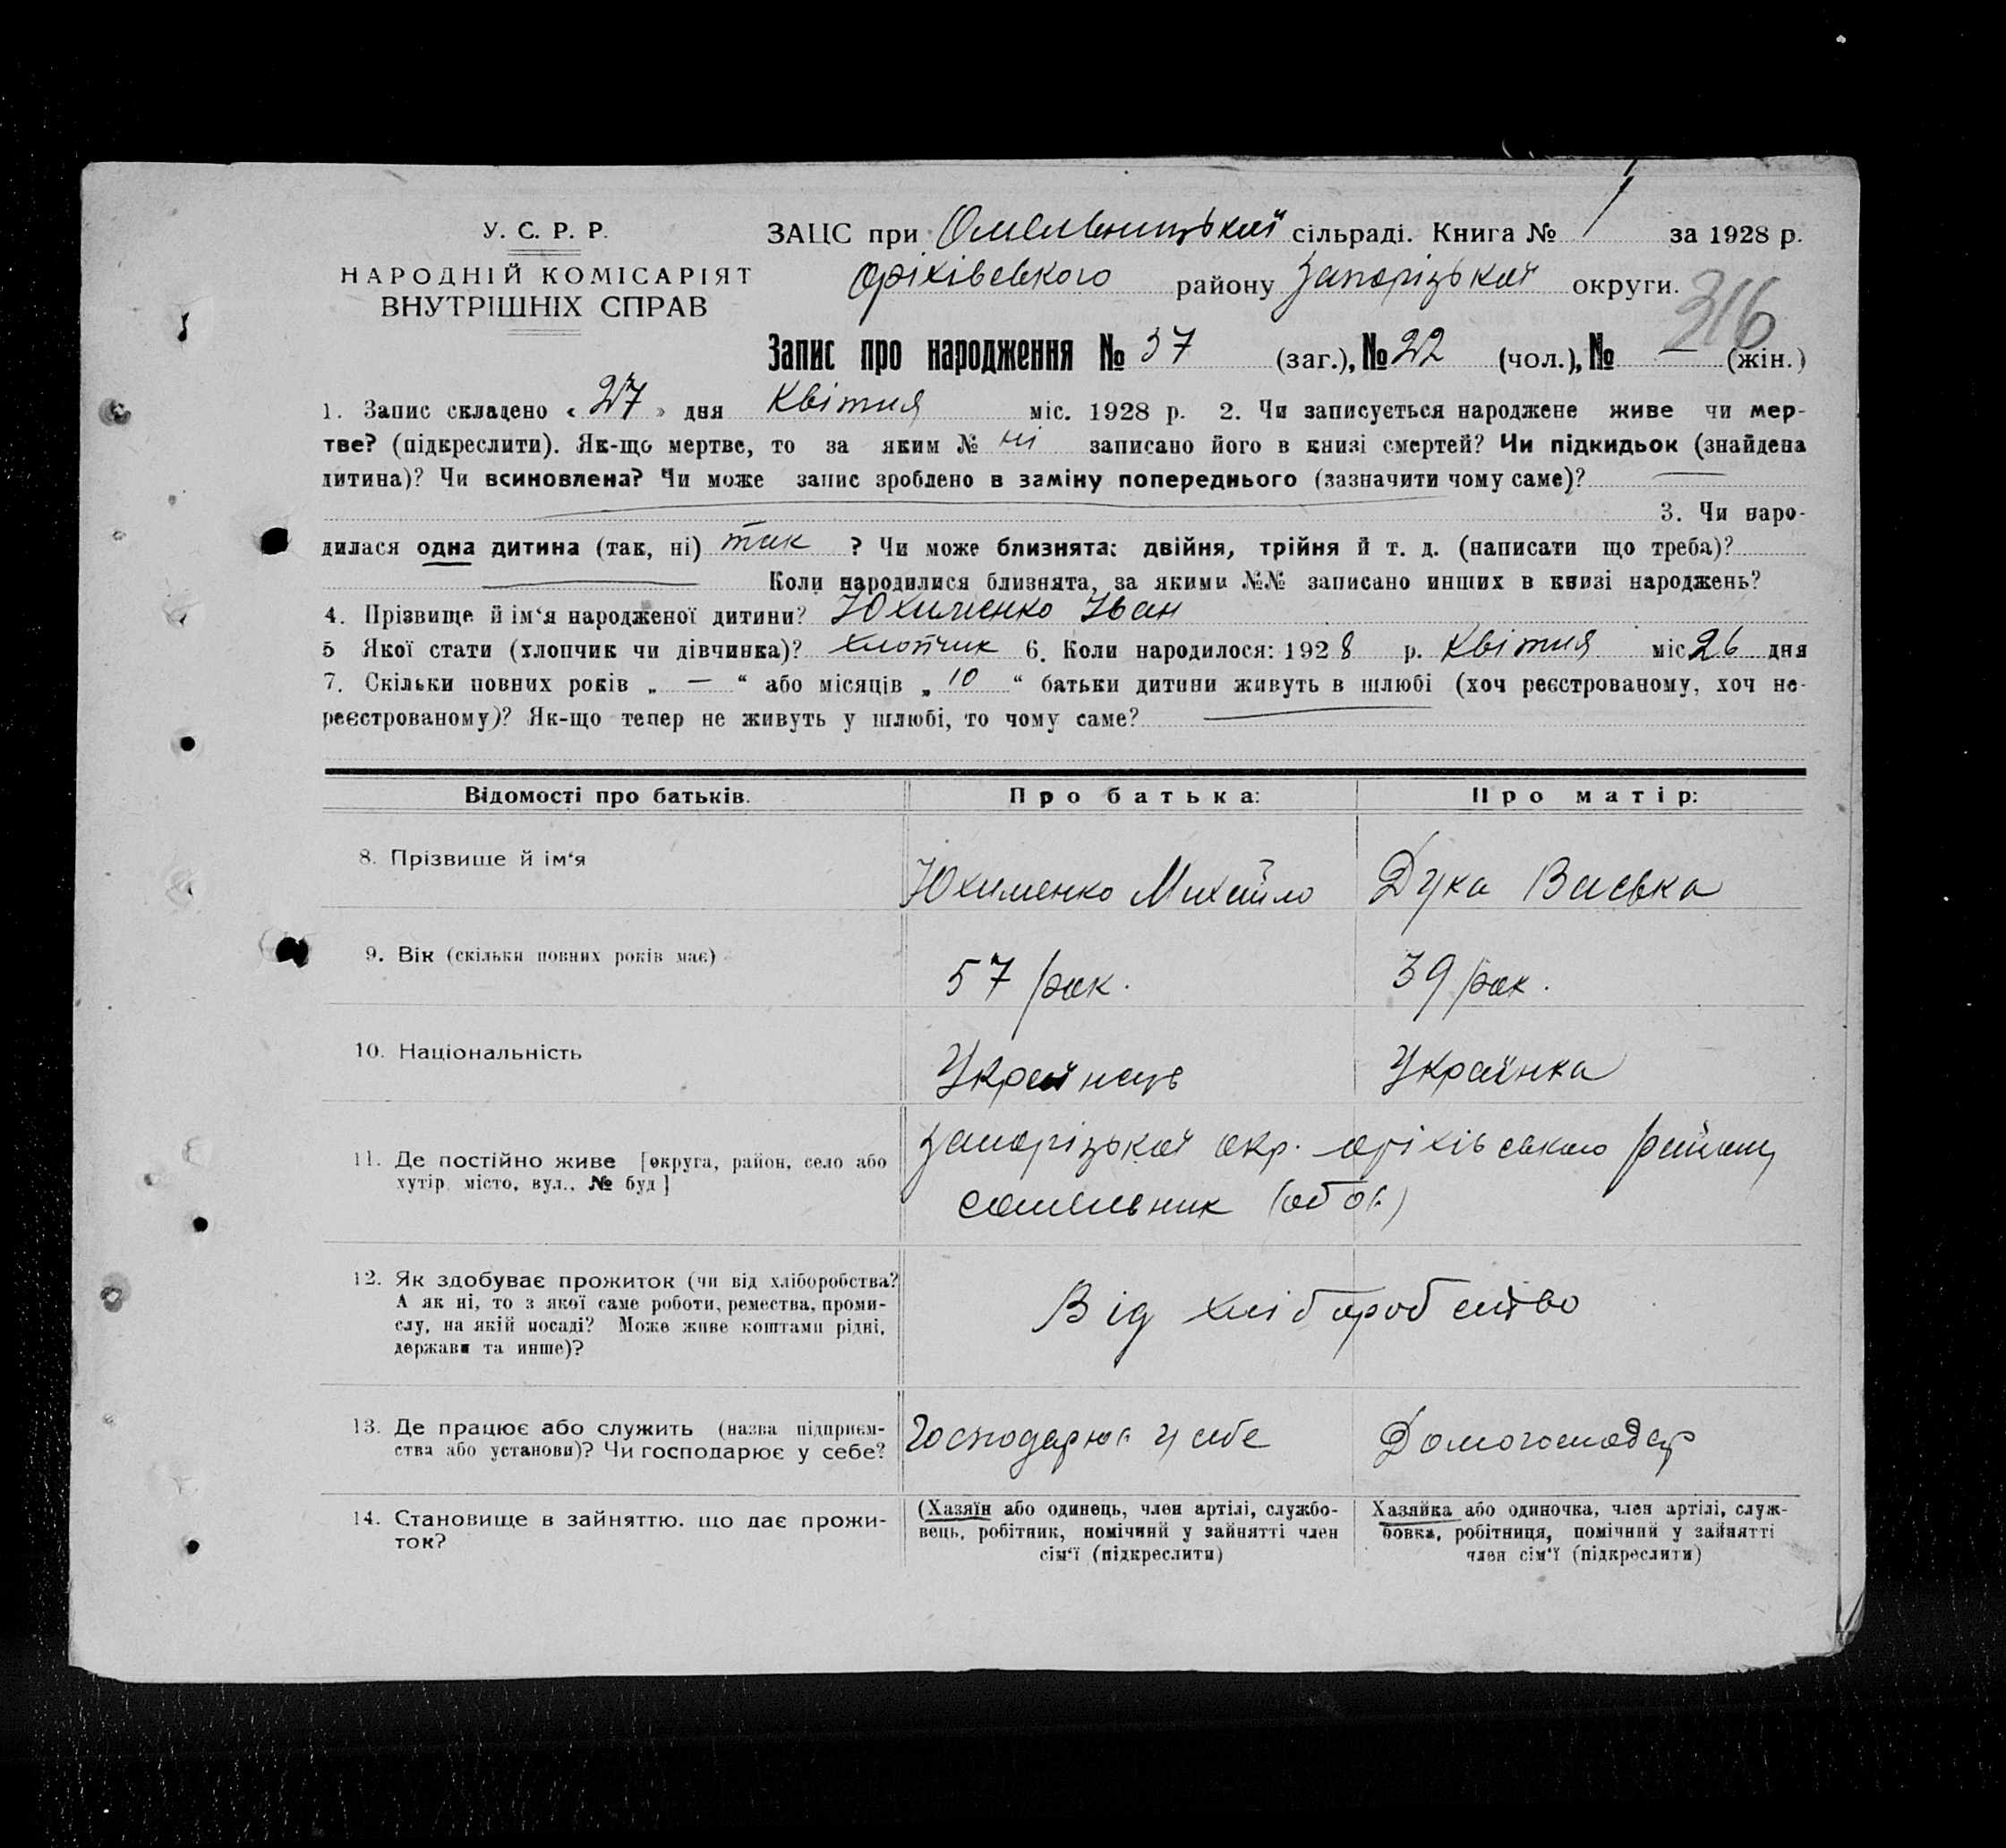 У. С. Р. Р.
НАРОДНІЙ КОМІСАРІЯТ
ВНУТРІШНІХ СПРАВ
ЗАЦС при Омельницької сільраді. Книга № 1 за 1928 р.
Оріхівського району Запорізької округи.
316
Запис про народження № 37 (заг.), № 22 (чол.), № — (жін.)
1. Запис складено « 27 » дня Квітня міс. 1928 р. 2. Чи записується народжене живе чи мер-
тве? (підкреслити). Як-що мертве, то за яким № ні записано його в книзі смертей? Чи підкидьок (знайдена
дитина)? Чи всиновлена? Чи може запис зроблено в заміну попереднього (зазначити чому саме)? —
3. Чи наро-
дилася одна дитина (так, ні) так ? Чи може близнята: двійня, трійня й т. д. (написати що треба)?
— Коли народилися близнята, за якими №№ записано инших в книзі народжень?
4. Прізвище й ім‘я народженої дитини? Юхименко Іван
5 Якої стати (хлопчик чи дівчинка)? хлопчик 6. Коли народилося: 1928 р. Квітня міс 26 дня
7. Скільки повних років „ — “ або місяців „ 10 “ батьки дитини живуть в шлюбі (хоч реєстрованому, хоч не-
реєстрованому)? Як-що тепер не живуть у шлюбі, то чому саме? —
Відомості про батьків. Про батька: Про матір:
8. Прізвище й ім‘я Юхименко Михайло Дука Васька
9. Вік (скільки повних років має) 57 рок. 39 рок.
10. Національність Українець Українка
11. Де постійно живе [округа, район, село або
хутір, місто, вул., № буд]
Запорізької окр. Оріхівського району
с Омельник
12. Як здобуває прожиток (чи від хліборобства?
А як ні, то з якої саме роботи, ремества, проми-
слу, на якій посаді? Може живе коштами рідні,
держави та инше)?
Від хліборобство
13. Де працює або служить (назва підприєм-
ства або установи)? Чи господарює у себе?
Господарює у себе Домогосподар
14. Становище в зайняттю, що дає прожи-
ток?
(Хазяїн або одинець, член артілі, службо-
вець, робітник, помічний у зайнятті член
сім‘ї (підкреслити)
Хазяйка або одиночка, член артілі, служ-
бовка, робітниця, помічний у зайнятті
член сім‘ї (підкреслити)